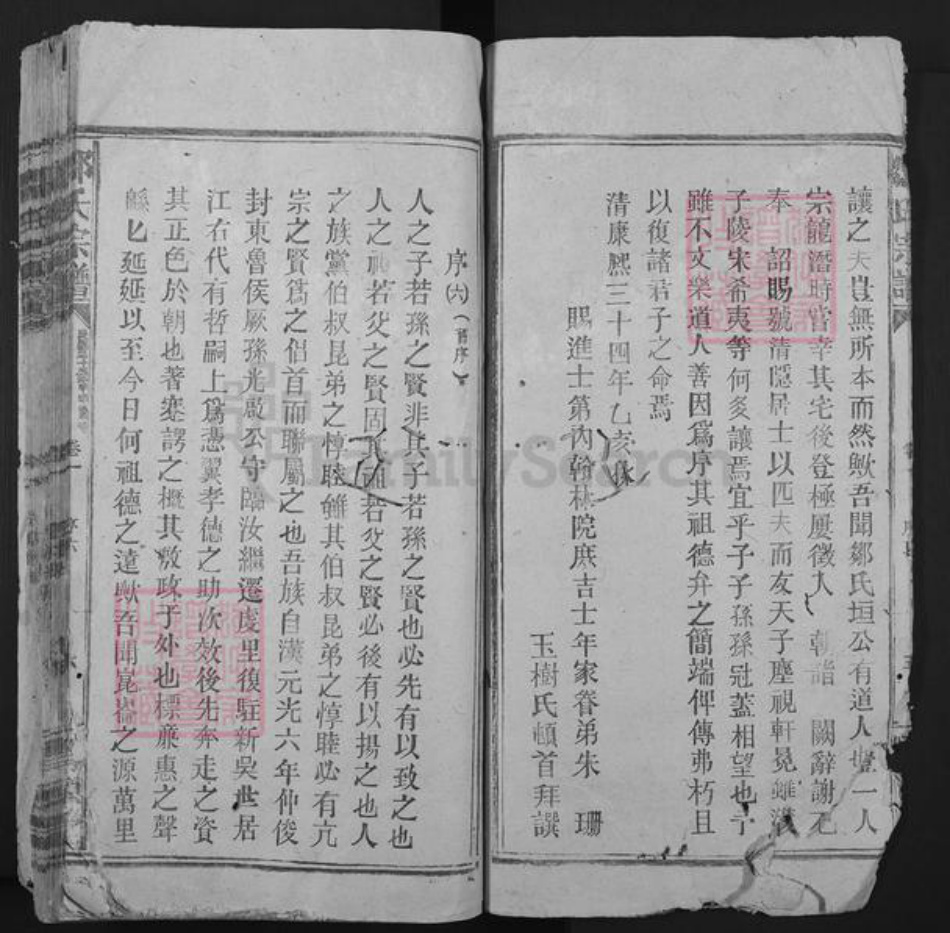 讓之夫豈無所本而然歟吾聞鄒氏垣公有道人豐一人
宗龍潛時官幸其宅後登極屢徵入 朝詣 闕辭謝不
奉 詔賜號清隱居士以匹夫而友天子塵視軒冕雖
子陵宋希夷等何多讓焉宜乎子子孫孫冠蓋相望也予
雖不文樂道人善因爲序其祖德弁之簡端俾傳弗朽且
以復諸君子之命焉
清康熙三十四年乙亥
賜進士第內翰林院庶吉士年家眷弟朱 珊
玉樹氏頓首拜譔
序(六)(舊序)
人之子若孫之賢非其子若孫之賢也必先有以致之也
人之祖若父之賢固其祖若父之賢必後有以揚之也人
之族黨伯叔昆弟之惇睦雖其伯叔昆弟之惇睦必有亢
宗之賢爲之倡首而聯屬之也吾族自漢元光六年仲俊
封東魯侯厥孫光殷公守臨汝繼遷度里復駐新吳世居
江右代有哲嗣上爲憑翼孝德之助次效後先奔走之資
其正色於朝也著蹇諤之概其敷政于外也標廉惠之聲
緜匕延延以至今日何祖德之遠歟吾聞崑崙之源萬里
鄒氏宗譜
卷一
序六
FamilySearch